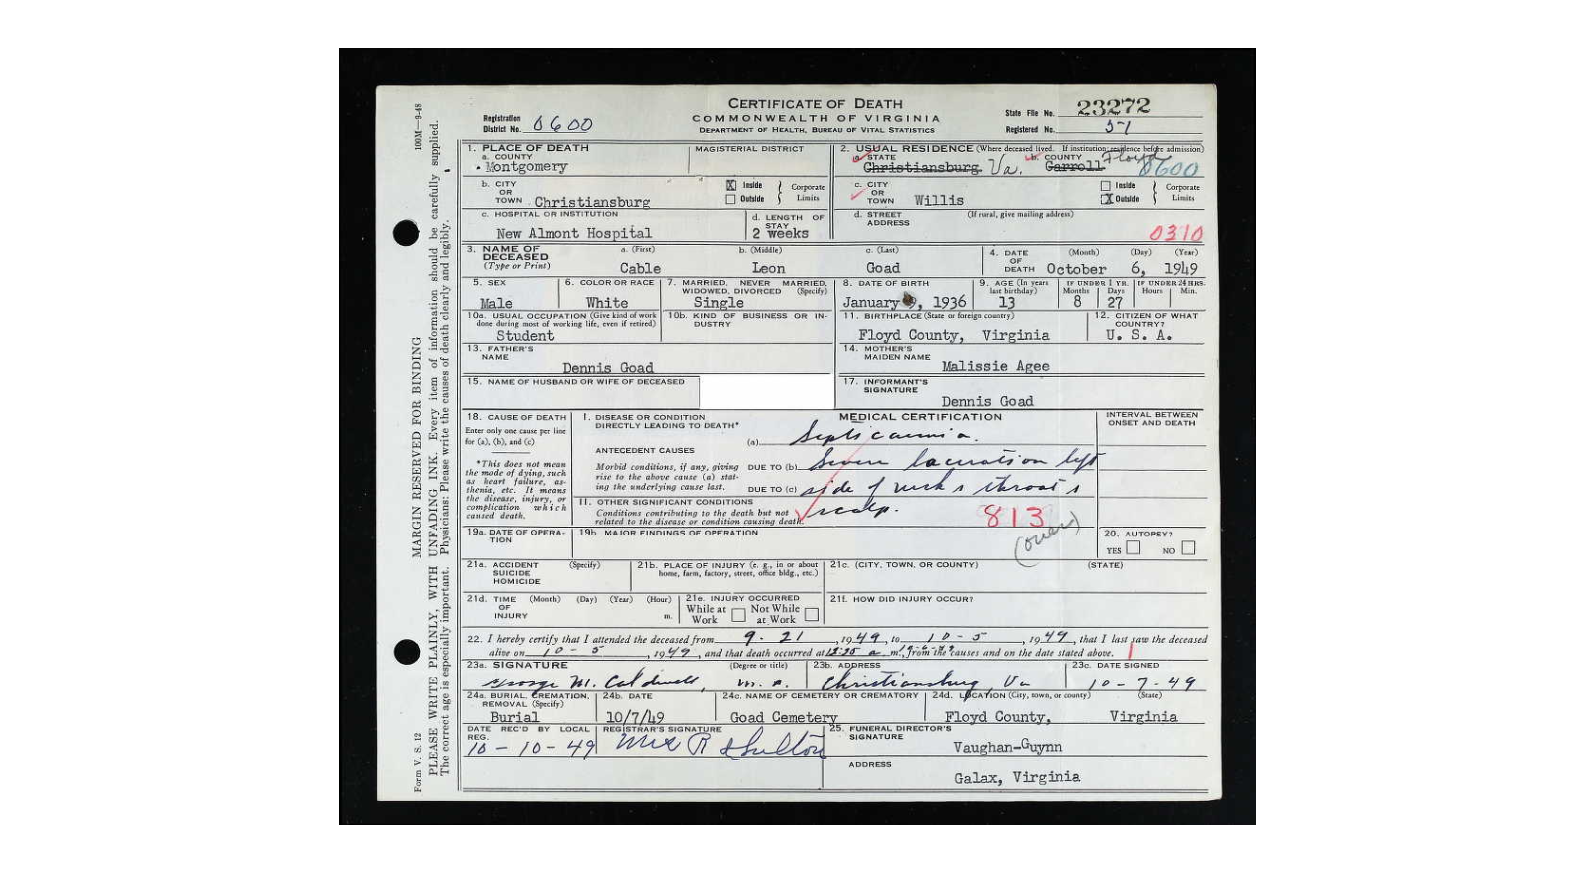 CERTIFICATE OF DEATH
COMMONWEALTH OF VIRGINIA
DEPARTMENT OF HEALTH, BUREAU OF VITAL STATISTICS
Registration District No. 0600
State File No. 23272
Registered No. 51
100M—9-48
MARGIN RESERVED FOR BINDING
PLEASE WRITE PLAINLY, WITH UNFADING INK. Every item of information should be carefully supplied.
The correct age is especially important. Physicians: Please write the causes of death clearly and legibly.
Form V. S. 12
1. PLACE OF DEATH
a. COUNTY
Montgomery
MAGISTERIAL DISTRICT
2. USUAL RESIDENCE (Where deceased lived. If institution: residence before admission)
a. STATE
Christiansburg Va.
b. COUNTY
Carroll Floyd
0600
b. CITY OR TOWN Christiansburg
X Inside
Outside
Corporate Limits
c. CITY OR TOWN Willis
Inside
X Outside
Corporate Limits
c. HOSPITAL OR INSTITUTION
New Almont Hospital
d. LENGTH OF STAY
2 weeks
d. STREET ADDRESS
(If rural, give mailing address)
0310
3. NAME OF DECEASED
(Type or Print)
a. (First)
Cable
b. (Middle)
Leon
c. (Last)
Goad
4. DATE OF DEATH
(Month) (Day) (Year)
October 6, 1949
5. SEX
Male
6. COLOR OR RACE
White
7. MARRIED, NEVER MARRIED, WIDOWED, DIVORCED (Specify)
Single
8. DATE OF BIRTH
January 9, 1936
9. AGE (In years last birthday)
13
IF UNDER 1 YR.
Months Days
8 27
IF UNDER 24 HRS.
Hours Min.
10a. USUAL OCCUPATION (Give kind of work done during most of working life, even if retired)
Student
10b. KIND OF BUSINESS OR INDUSTRY
11. BIRTHPLACE (State or foreign country)
Floyd County, Virginia
12. CITIZEN OF WHAT COUNTRY?
U. S. A.
13. FATHER'S NAME
Dennis Goad
14. MOTHER'S MAIDEN NAME
Malissie Agee
15. NAME OF HUSBAND OR WIFE OF DECEASED
17. INFORMANT'S SIGNATURE
Dennis Goad
18. CAUSE OF DEATH
Enter only one cause per line for (a), (b), and (c)
*This does not mean the mode of dying, such as heart failure, asthenia, etc. It means the disease, injury, or complication which caused death.
MEDICAL CERTIFICATION
INTERVAL BETWEEN ONSET AND DEATH
I. DISEASE OR CONDITION DIRECTLY LEADING TO DEATH*
(a) Septicaemia.
ANTECEDENT CAUSES
Morbid conditions, if any, giving rise to the above cause (a) stating the underlying cause last.
DUE TO (b) Severe laceration left
DUE TO (c) side of neck & throat &
scalp.
II. OTHER SIGNIFICANT CONDITIONS
Conditions contributing to the death but not related to the disease or condition causing death.
813
(over)
19a. DATE OF OPERATION
19b. MAJOR FINDINGS OF OPERATION
20. AUTOPSY?
YES NO
21a. ACCIDENT SUICIDE HOMICIDE (Specify)
21b. PLACE OF INJURY (e. g., in or about home, farm, factory, street, office bldg., etc.)
21c. (CITY, TOWN, OR COUNTY)
(STATE)
21d. TIME OF INJURY (Month) (Day) (Year) (Hour) m.
21e. INJURY OCCURRED
While at Work Not While at Work
21f. HOW DID INJURY OCCUR?
22. I hereby certify that I attended the deceased from 9-21, 1949, to 10-5, 1949, that I last saw the deceased
alive on 10-5, 1949, and that death occurred at 12:35 a m., from the causes and on the date stated above.
23a. SIGNATURE (Degree or title)
George M. Caldwell, M.D.
23b. ADDRESS
Christiansburg, Va
23c. DATE SIGNED
10-7-49
24a. BURIAL, CREMATION, REMOVAL (Specify)
Burial
24b. DATE
10/7/49
24c. NAME OF CEMETERY OR CREMATORY
Goad Cemetery
24d. LOCATION (City, town, or county) (State)
Floyd County, Virginia
DATE REC'D BY LOCAL REG.
10-10-49
REGISTRAR'S SIGNATURE
Mrs R Shelton
25. FUNERAL DIRECTOR'S SIGNATURE
Vaughan-Guynn
ADDRESS
Galax, Virginia